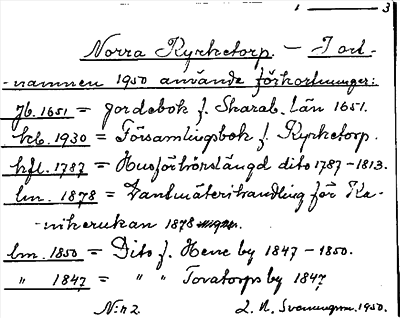 1 — 3
Norra Kyrketorp. – I ort-
-namnen 1950 använda förkortningar:
Jb. 1651 = Jordebok f. Skarab. län 1651.
kb. 1930 = Församlingsbok f. Kyrketorp.
hfl. 1787 = Husförhörslängd dito 1787–1813.
lm. 1878 = Lantmäterihandling för Ka-
-nikerukan 1878
lm. 1850 = Dito f. Hene by 1847–1850.
" 1847 = " " Tovatorps by 1847
N:r 2. L. A. Svenungsson. 1950.